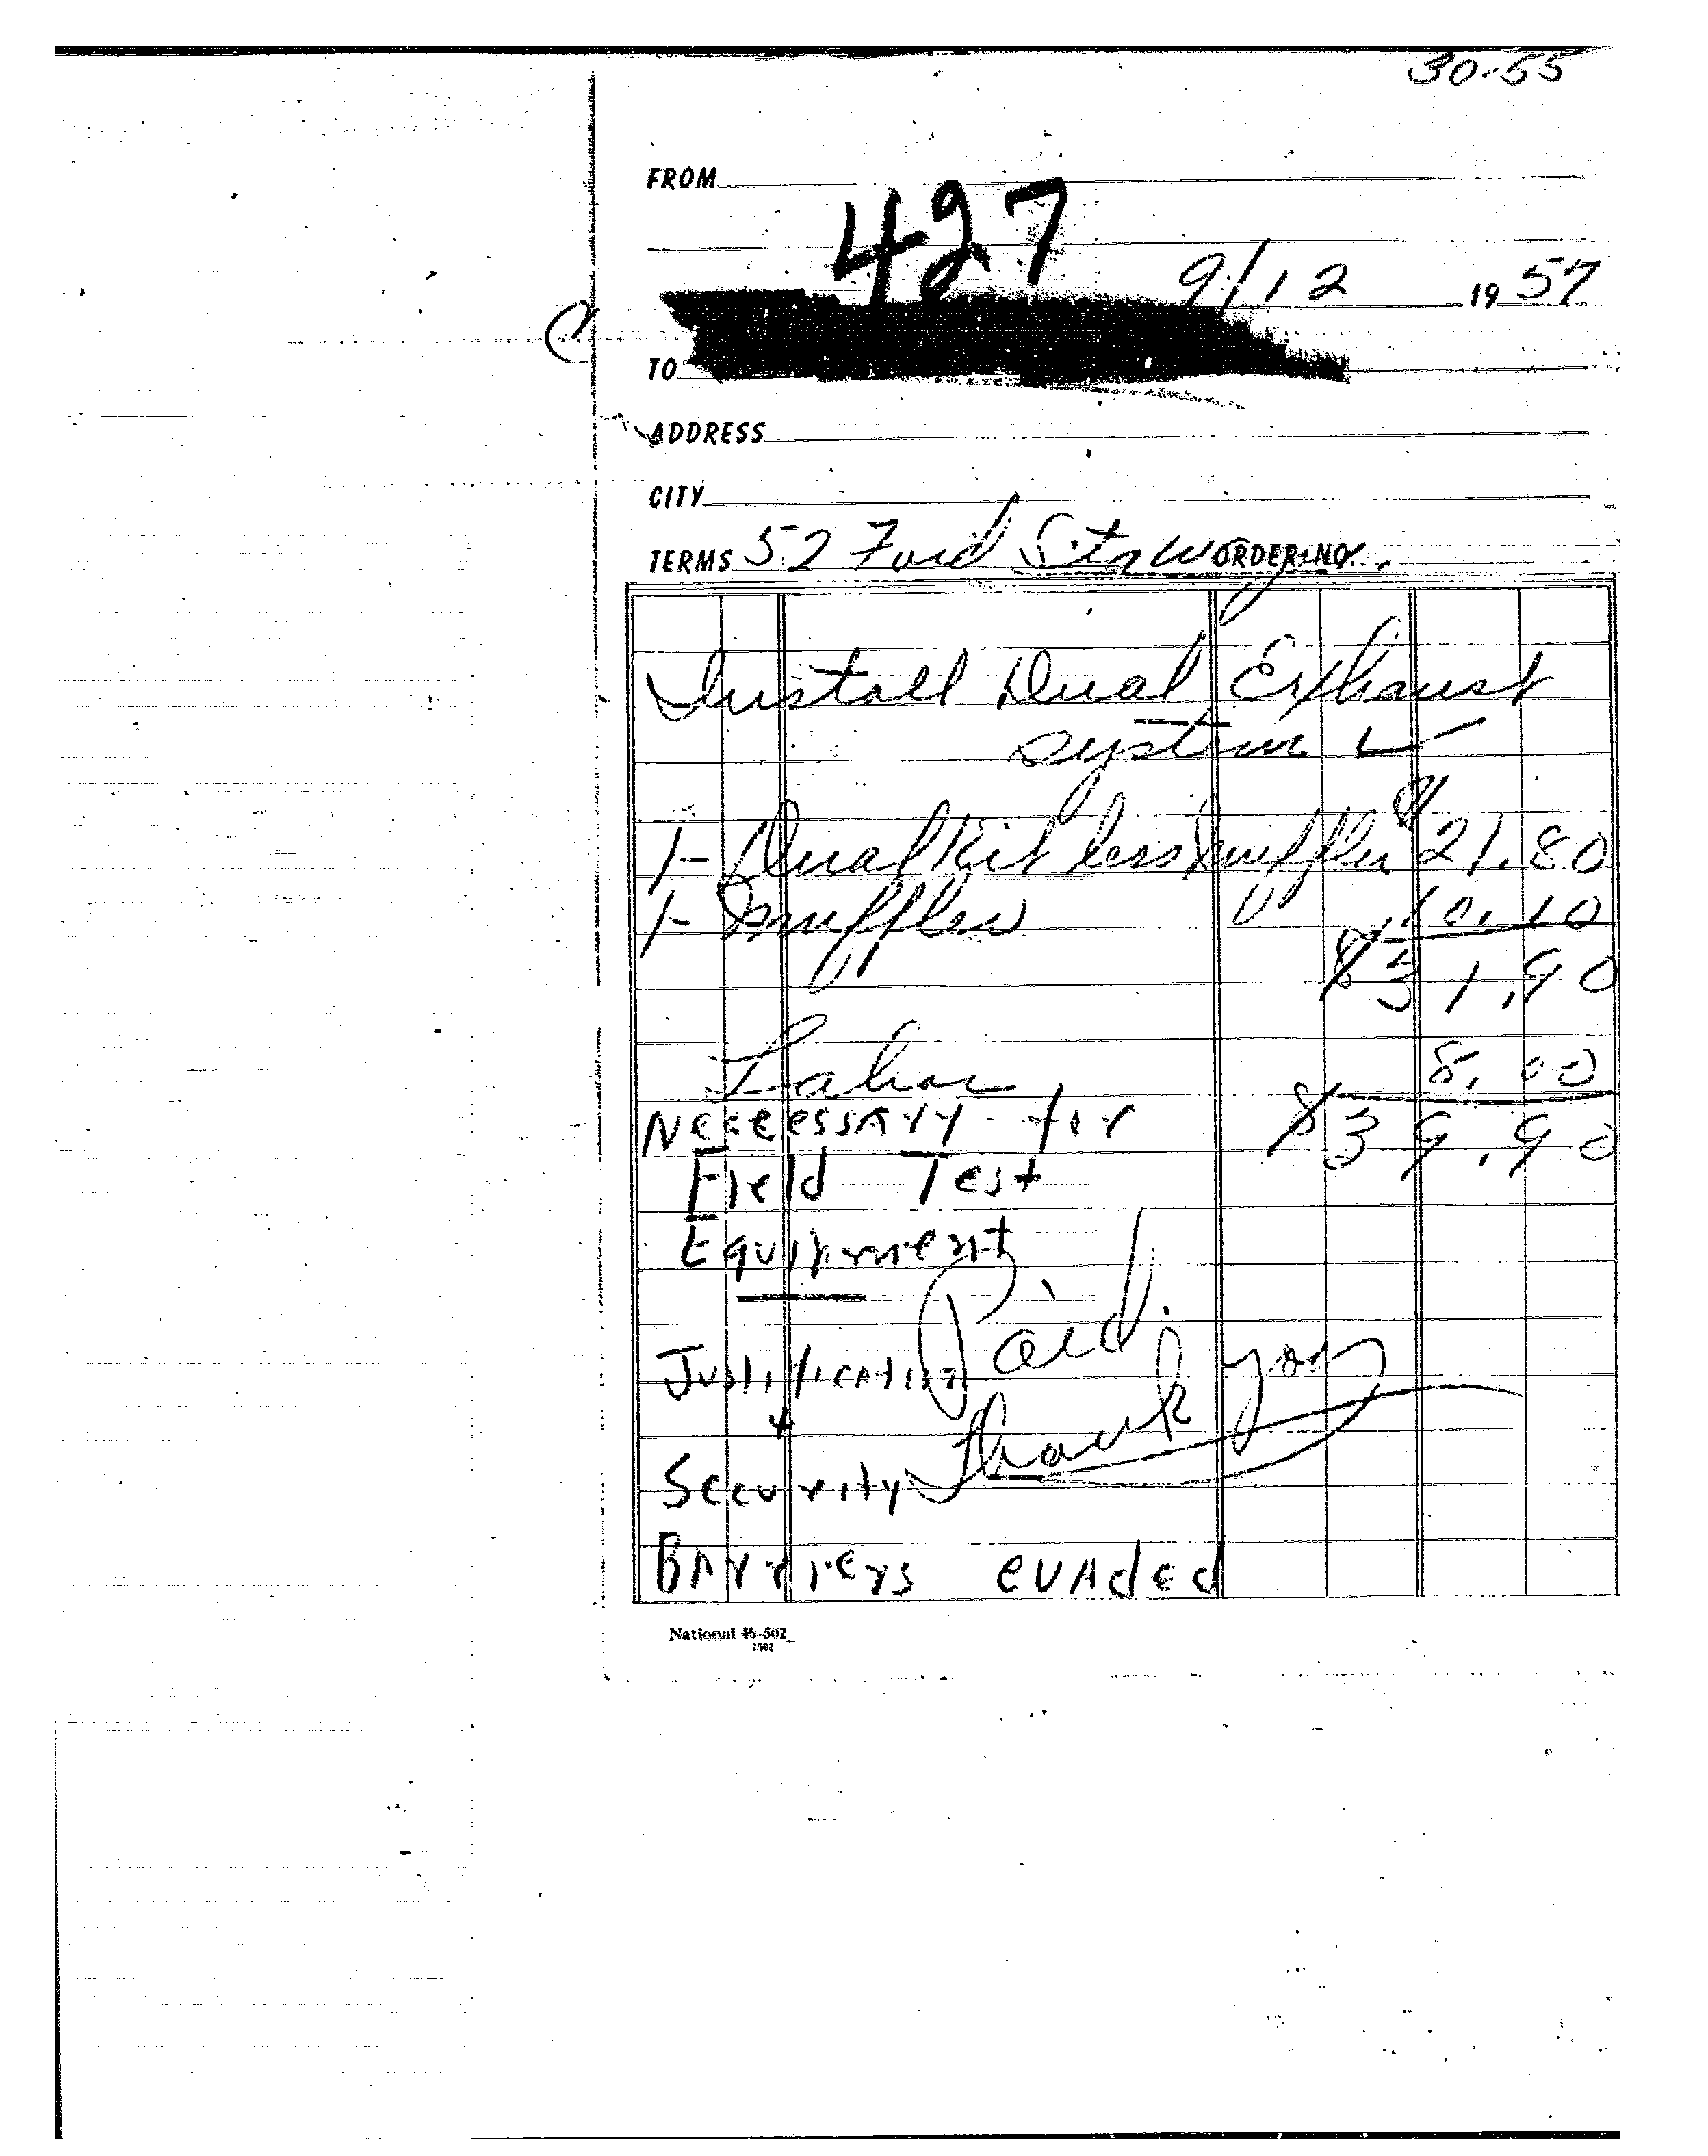 30-55
FROM
427
9/12 1957
TO
ADDRESS
CITY
TERMS 52 Ford Sta Wag. ORDER NO.
Install Dual Exhaust
system ✓
1- Dual Kit less muffler $21.80
1- Muffler 10.10
$31.90
Labor 8.00
Necessary for $39.90
Field Test
Equipment
Paid.
Justification
+
Thank you
Security
Barriers evaded
National 46-502
2502